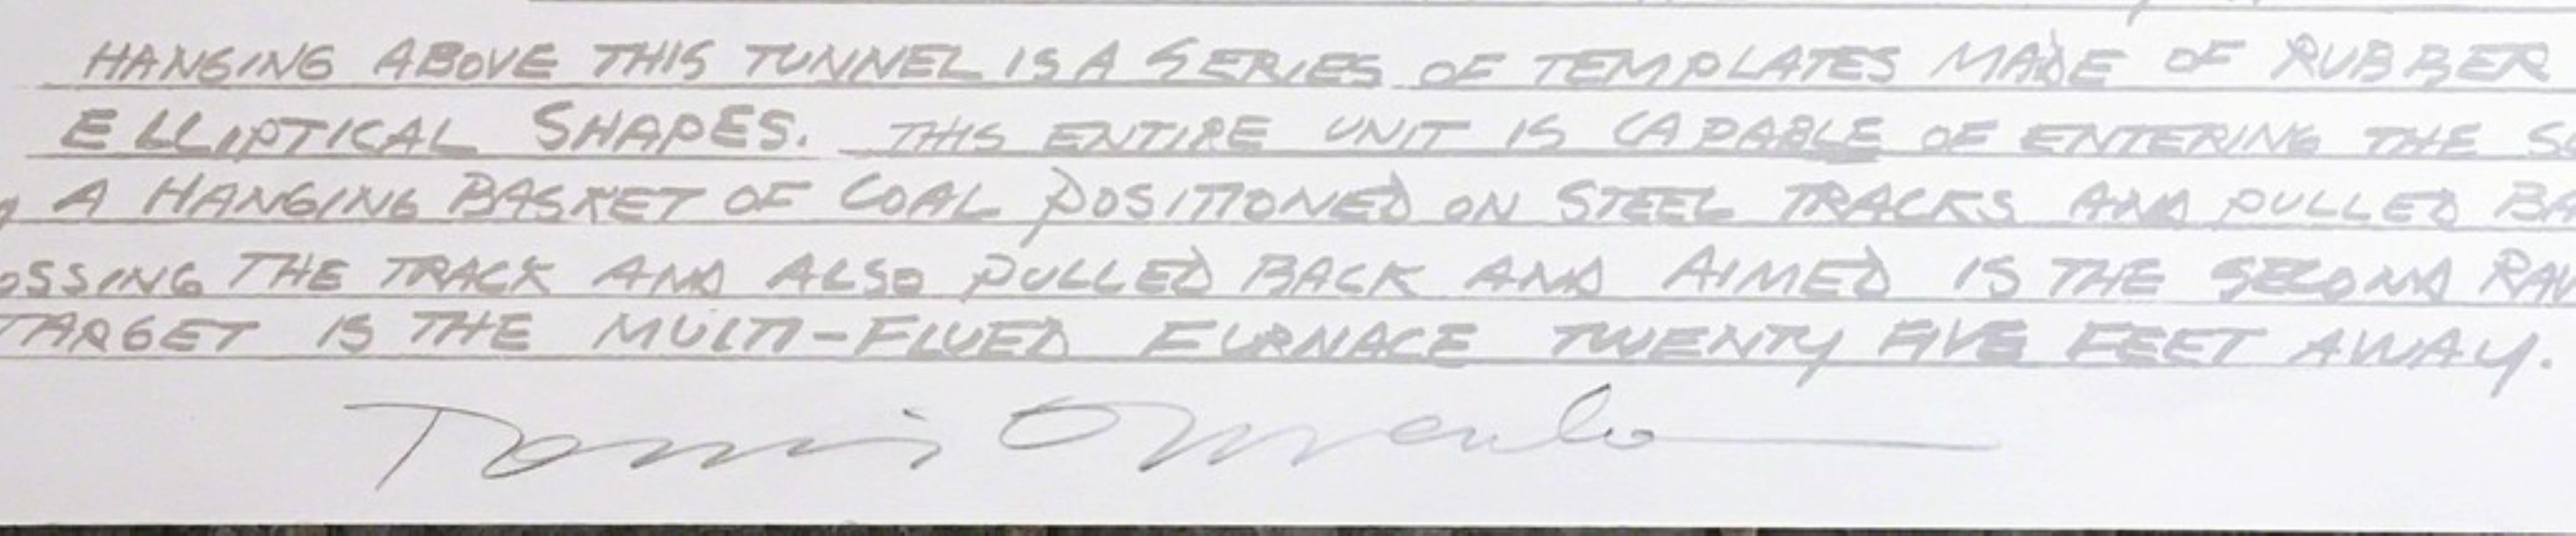 HANGING ABOVE THIS TUNNEL IS A SERIES OF TEMPLATES MADE OF RUBBER
ELLIPTICAL SHAPES. THIS ENTIRE UNIT IS CAPABLE OF ENTERING THE
A HANGING BASKET OF COAL POSITIONED ON STEEL TRACKS AND PULLED BA
OSSING THE TRACK AND ALSO PULLED BACK AND AIMED IS THE SECOND
TARGET IS THE MULTI-FLUED FURNACE TWENTY FIVE FEET AWAY.
Dennis Oppenheim